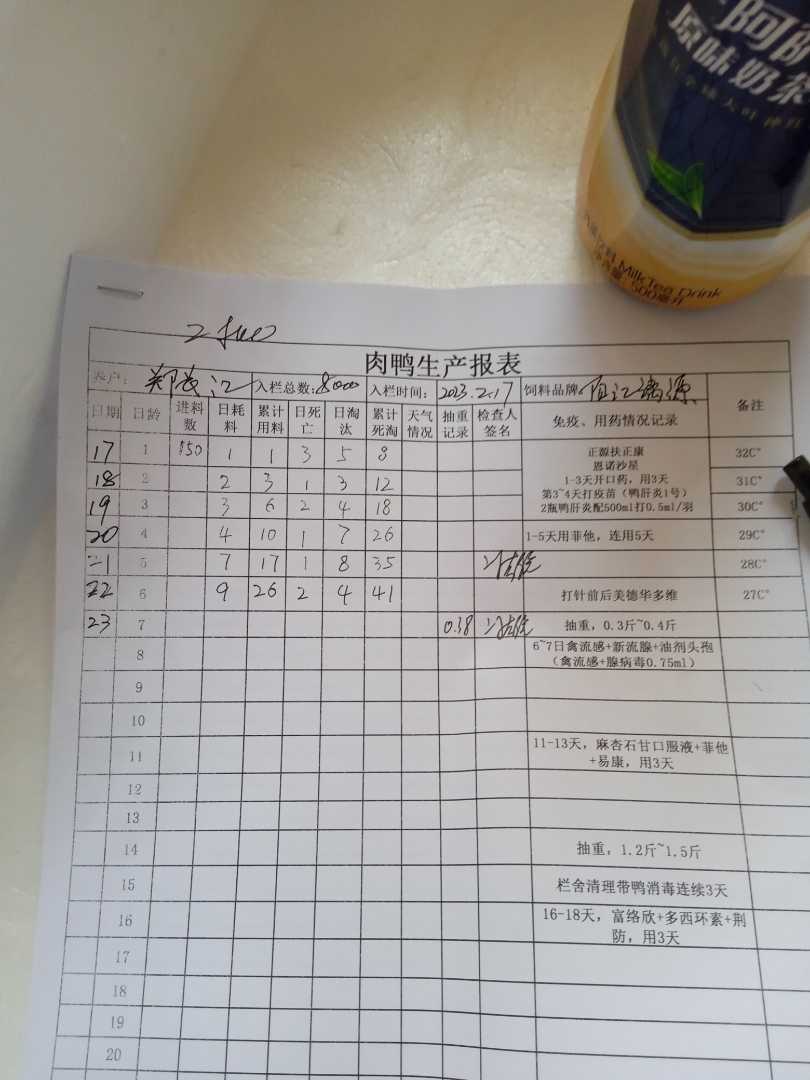 原味奶茶
Milk Tea Drink
500毫升
肉鸭生产报表
客户: 郑 江 入栏总数: 8000 入栏时间: 2023.2.17 饲料品牌 江 源 备注
日期 日龄 进料数 日耗料 累计用料 日死亡 日淘汰 累计死淘 天气情况 抽重记录 检查人签名 免疫、用药情况记录
17 1 850 1 1 3 5 8 正源扶正康 32C°
恩诺沙星
18 2 2 3 1 3 12 1-3天开口药，用3天 31C°
第3~4天打疫苗（鸭肝炎1号）
19 3 3 6 2 4 18 2瓶鸭肝炎配500ml打0.5ml/羽 30C°
20 4 4 10 1 7 26 1-5天用菲他，连用5天 29C°
21 5 7 17 1 8 35 28C°
22 6 9 26 2 4 41 打针前后美德华多维 27C°
23 7 0.38 抽重，0.3斤~0.4斤
8 6~7日禽流感+新流腺+油剂头孢
（禽流感+腺病毒0.75ml）
9
10
11 11-13天，麻杏石甘口服液+菲他
+易康，用3天
12
13
14 抽重，1.2斤~1.5斤
15 栏舍清理带鸭消毒连续3天
16 16-18天，富络欣+多西环素+荆
防，用3天
17
18
19
20